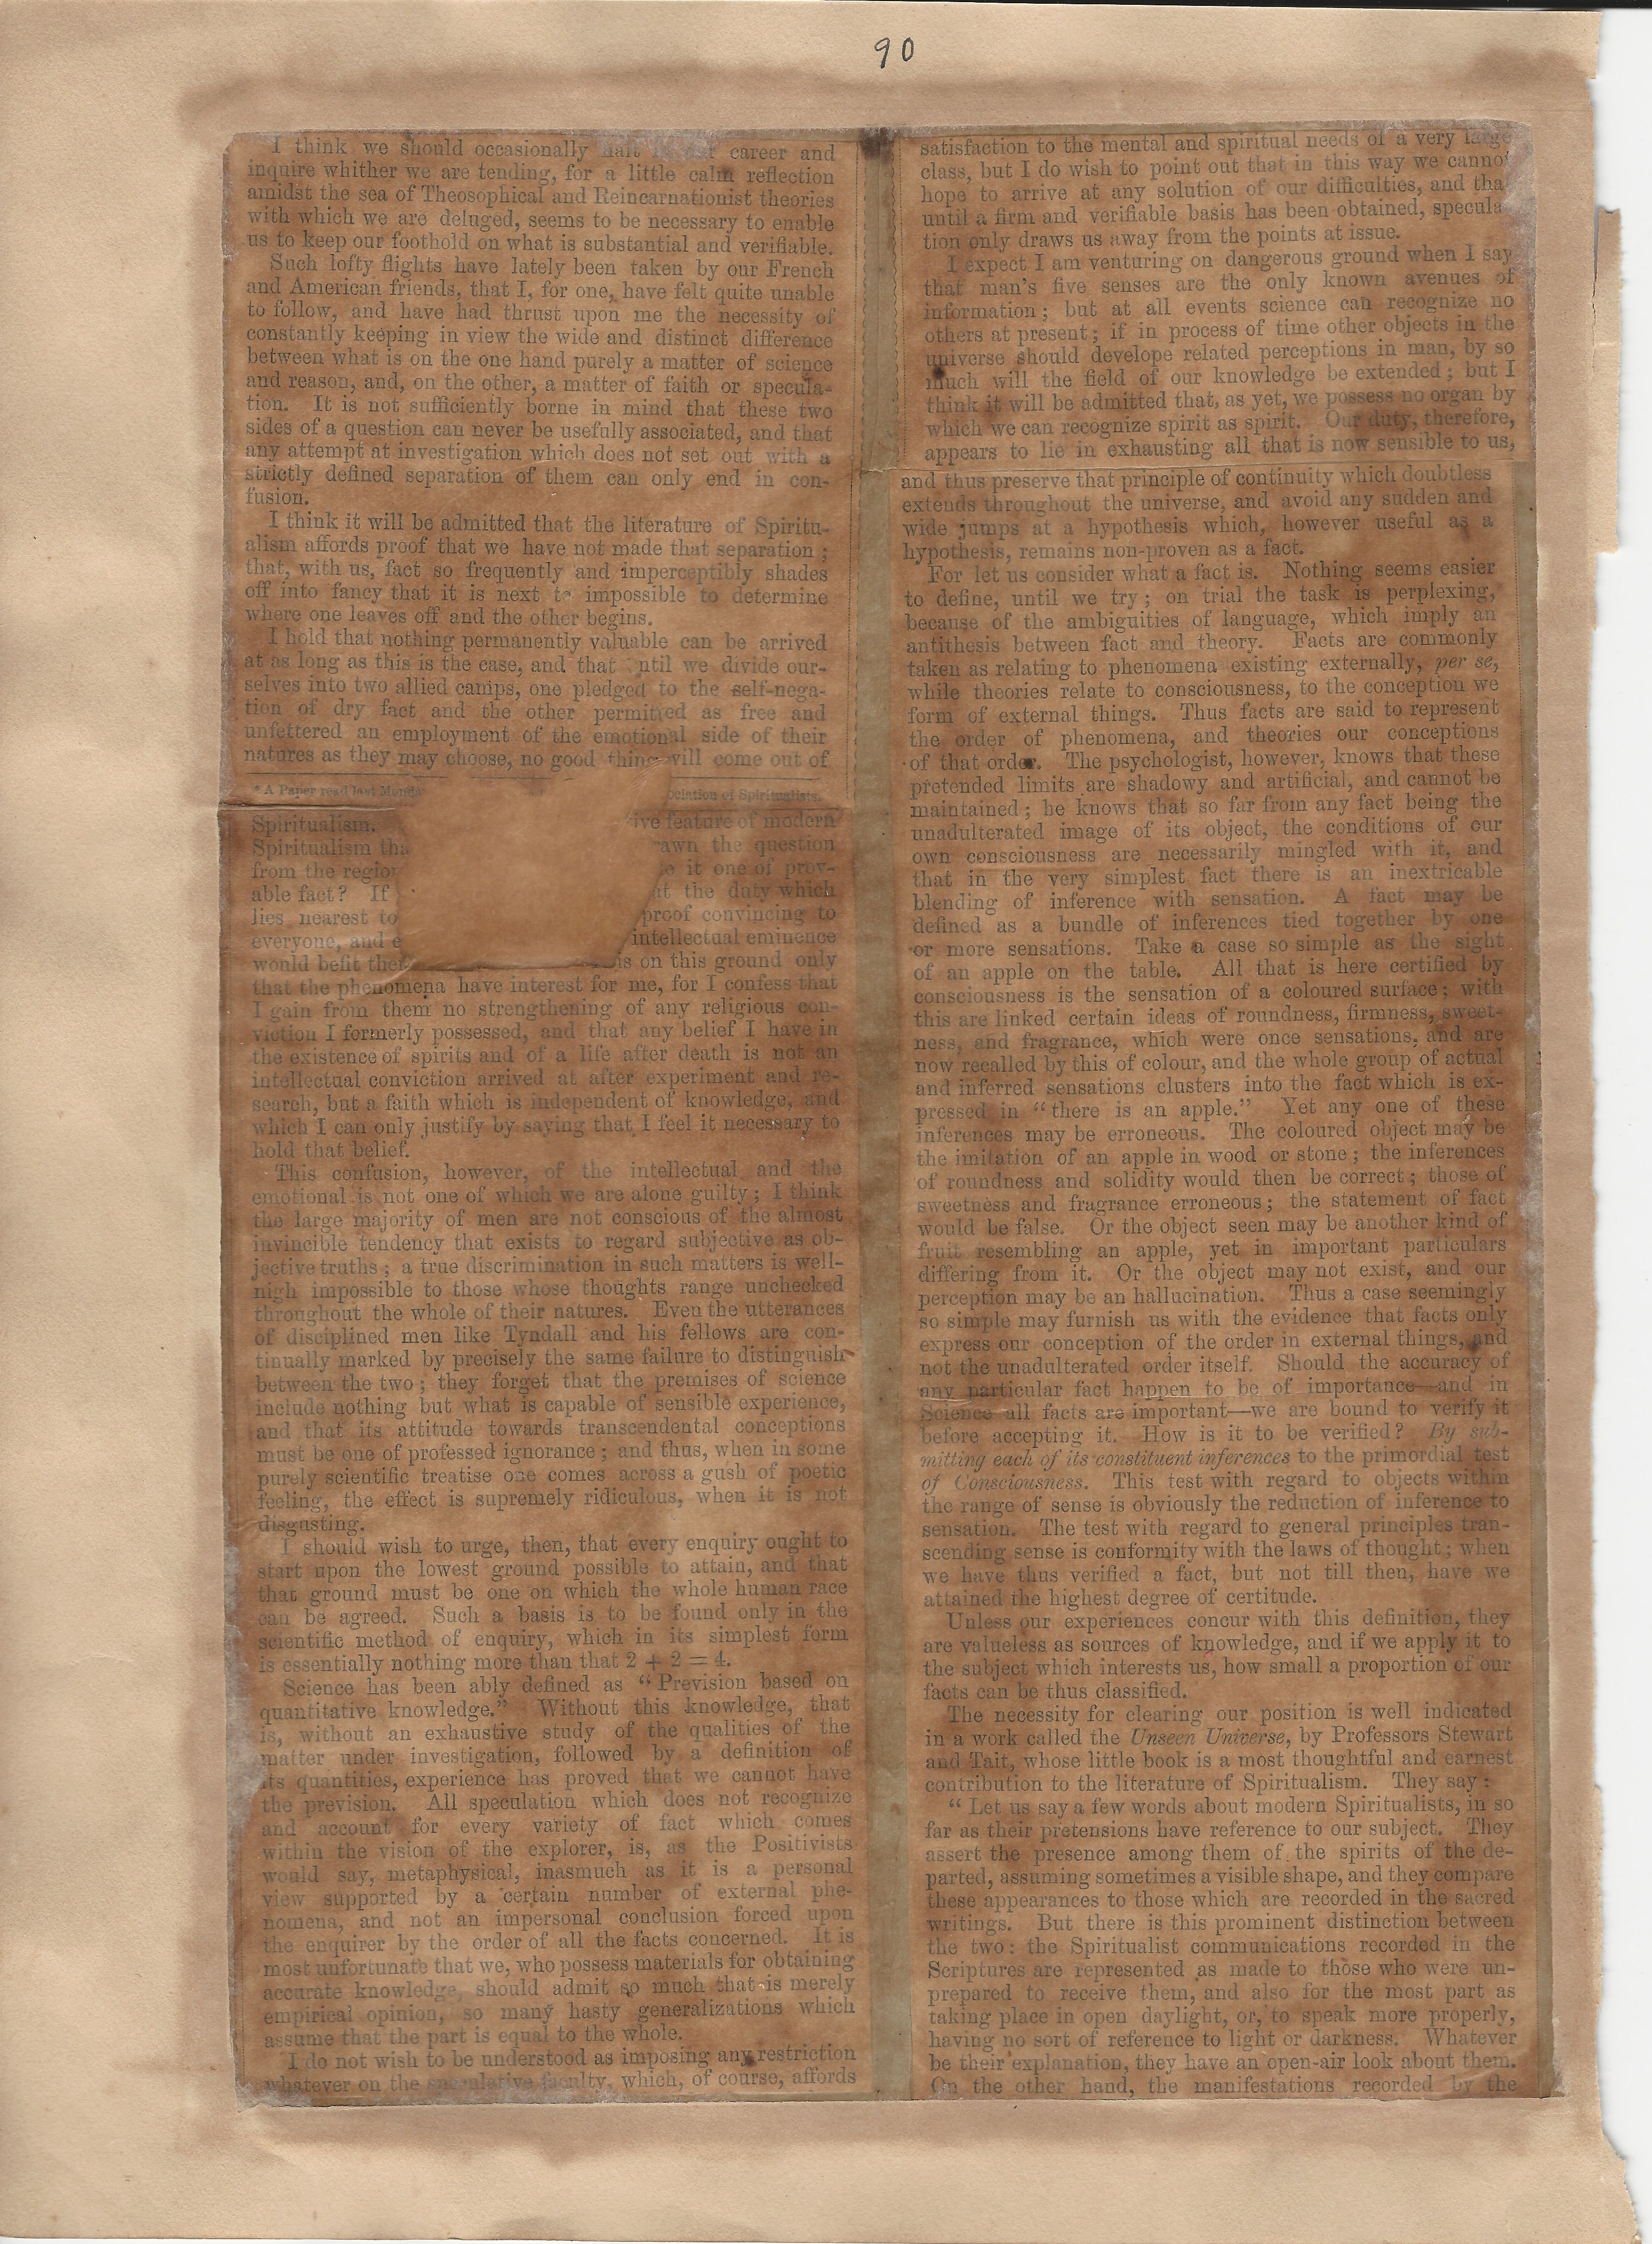 90
I think we should occasionally halt career and
inquire whither we are tending, for a little calm reflection
amidst the sea of Theosophical and Reincarnationist theories
with which we are deluged, seems to be necessary to enable
us to keep our foothold on what is substantial and verifiable.
Such lofty flights have lately been taken by our French
and American friends, that I, for one, have felt quite unable
to follow, and have had thrust upon me the necessity of
constantly keeping in view the wide and distinct difference
between what is on the one hand purely a matter of science
and reason, and, on the other, a matter of faith or specula-
tion. It is not sufficiently borne in mind that these two
sides of a question can never be usefully associated, and that
any attempt at investigation which does not set out with a
strictly defined separation of them can only end in con-
fusion.
I think it will be admitted that the literature of Spiritu-
alism affords proof that we have not made that separation;
that, with us, fact so frequently and imperceptibly shades
off into fancy that it is next to impossible to determine
where one leaves off and the other begins.
I hold that nothing permanently valuable can be arrived
at as long as this is the case, and that until we divide our-
selves into two allied camps, one pledged to the self-nega-
tion of dry fact and the other permitted as free and
unfettered an employment of the emotional side of their
natures as they may choose, no good thing will come out of
* A Paper read last Monda ociation of Spiritualists.
Spiritualism. ive feature of modern
Spiritualism tha rawn the question
from the region e it one of prov-
able fact? If at the duty which
lies nearest to proof convincing to
everyone, and e intellectual eminence
would befit the is on this ground only
that the phenomena have interest for me, for I confess that
I gain from them no strengthening of any religious con-
viction I formerly possessed, and that any belief I have in
the existence of spirits and of a life after death is not an
intellectual conviction arrived at after experiment and re-
search, but a faith which is independent of knowledge, and
which I can only justify by saying that I feel it necessary to
hold that belief.
This confusion, however, of the intellectual and the
emotional is not one of which we are alone guilty; I think
the large majority of men are not conscious of the almost
invincible tendency that exists to regard subjective as ob-
jective truths; a true discrimination in such matters is well-
nigh impossible to those whose thoughts range unchecked
throughout the whole of their natures. Even the utterances
of disciplined men like Tyndall and his fellows are con-
tinually marked by precisely the same failure to distinguish
between the two; they forget that the premises of science
include nothing but what is capable of sensible experience,
and that its attitude towards transcendental conceptions
must be one of professed ignorance; and thus, when in some
purely scientific treatise one comes across a gush of poetic
feeling, the effect is supremely ridiculous, when it is not
disgusting.
I should wish to urge, then, that every enquiry ought to
start upon the lowest ground possible to attain, and that
that ground must be one on which the whole human race
can be agreed. Such a basis is to be found only in the
scientific method of enquiry, which in its simplest form
is essentially nothing more than that 2 + 2 = 4.
Science has been ably defined as “Prevision based on
quantitative knowledge.” Without this knowledge, that
is, without an exhaustive study of the qualities of the
matter under investigation, followed by a definition of
its quantities, experience has proved that we cannot have
the prevision. All speculation which does not recognize
and account for every variety of fact which comes
within the vision of the explorer, is, as the Positivists
would say, metaphysical, inasmuch as it is a personal
view supported by a certain number of external phe-
nomena, and not an impersonal conclusion forced upon
the enquirer by the order of all the facts concerned. It is
most unfortunate that we, who possess materials for obtaining
accurate knowledge, should admit so much that is merely
empirical opinion, so many hasty generalizations which
assume that the part is equal to the whole.
I do not wish to be understood as imposing any restriction
whatever on the speculative faculty, which, of course, affords
satisfaction to the mental and spiritual needs of a very large
class, but I do wish to point out that in this way we cannot
hope to arrive at any solution of our difficulties, and tha
until a firm and verifiable basis has been obtained, specula
tion only draws us away from the points at issue.
I expect I am venturing on dangerous ground when I say
that man's five senses are the only known avenues of
information; but at all events science can recognize no
others at present; if in process of time other objects in the
universe should develope related perceptions in man, by so
much will the field of our knowledge be extended; but I
think it will be admitted that, as yet, we possess no organ by
which we can recognize spirit as spirit. Our duty, therefore,
appears to lie in exhausting all that is now sensible to us,
and thus preserve that principle of continuity which doubtless
extends throughout the universe, and avoid any sudden and
wide jumps at a hypothesis which, however useful as a
hypothesis, remains non-proven as a fact.
For let us consider what a fact is. Nothing seems easier
to define, until we try; on trial the task is perplexing,
because of the ambiguities of language, which imply an
antithesis between fact and theory. Facts are commonly
taken as relating to phenomena existing externally, per se,
while theories relate to consciousness, to the conception we
form of external things. Thus facts are said to represent
the order of phenomena, and theories our conceptions
of that order. The psychologist, however, knows that these
pretended limits are shadowy and artificial, and cannot be
maintained; he knows that so far from any fact being the
unadulterated image of its object, the conditions of our
own consciousness are necessarily mingled with it, and
that in the very simplest fact there is an inextricable
blending of inference with sensation. A fact may be
defined as a bundle of inferences tied together by one
or more sensations. Take a case so simple as the sight
of an apple on the table. All that is here certified by
consciousness is the sensation of a coloured surface; with
this are linked certain ideas of roundness, firmness, sweet-
ness, and fragrance, which were once sensations, and are
now recalled by this of colour, and the whole group of actual
and inferred sensations clusters into the fact which is ex-
pressed in “there is an apple.” Yet any one of these
inferences may be erroneous. The coloured object may be
the imitation of an apple in wood or stone; the inferences
of roundness and solidity would then be correct; those of
sweetness and fragrance erroneous; the statement of fact
would be false. Or the object seen may be another kind of
fruit resembling an apple, yet in important particulars
differing from it. Or the object may not exist, and our
perception may be an hallucination. Thus a case seemingly
so simple may furnish us with the evidence that facts only
express our conception of the order in external things, and
not the unadulterated order itself. Should the accuracy of
any particular fact happen to be of importance—and in
Science all facts are important—we are bound to verify it
before accepting it. How is it to be verified? By sub-
mitting each of its constituent inferences to the primordial test
of Consciousness. This test with regard to objects within
the range of sense is obviously the reduction of inference to
sensation. The test with regard to general principles tran-
scending sense is conformity with the laws of thought; when
we have thus verified a fact, but not till then, have we
attained the highest degree of certitude.
Unless our experiences concur with this definition, they
are valueless as sources of knowledge, and if we apply it to
the subject which interests us, how small a proportion of our
facts can be thus classified.
The necessity for clearing our position is well indicated
in a work called the Unseen Universe, by Professors Stewart
and Tait, whose little book is a most thoughtful and earnest
contribution to the literature of Spiritualism. They say:
“Let us say a few words about modern Spiritualists, in so
far as their pretensions have reference to our subject. They
assert the presence among them of the spirits of the de-
parted, assuming sometimes a visible shape, and they compare
these appearances to those which are recorded in the sacred
writings. But there is this prominent distinction between
the two: the Spiritualist communications recorded in the
Scriptures are represented as made to those who were un-
prepared to receive them, and also for the most part as
taking place in open daylight, or, to speak more properly,
having no sort of reference to light or darkness. Whatever
be their explanation, they have an open-air look about them.
On the other hand, the manifestations recorded by the